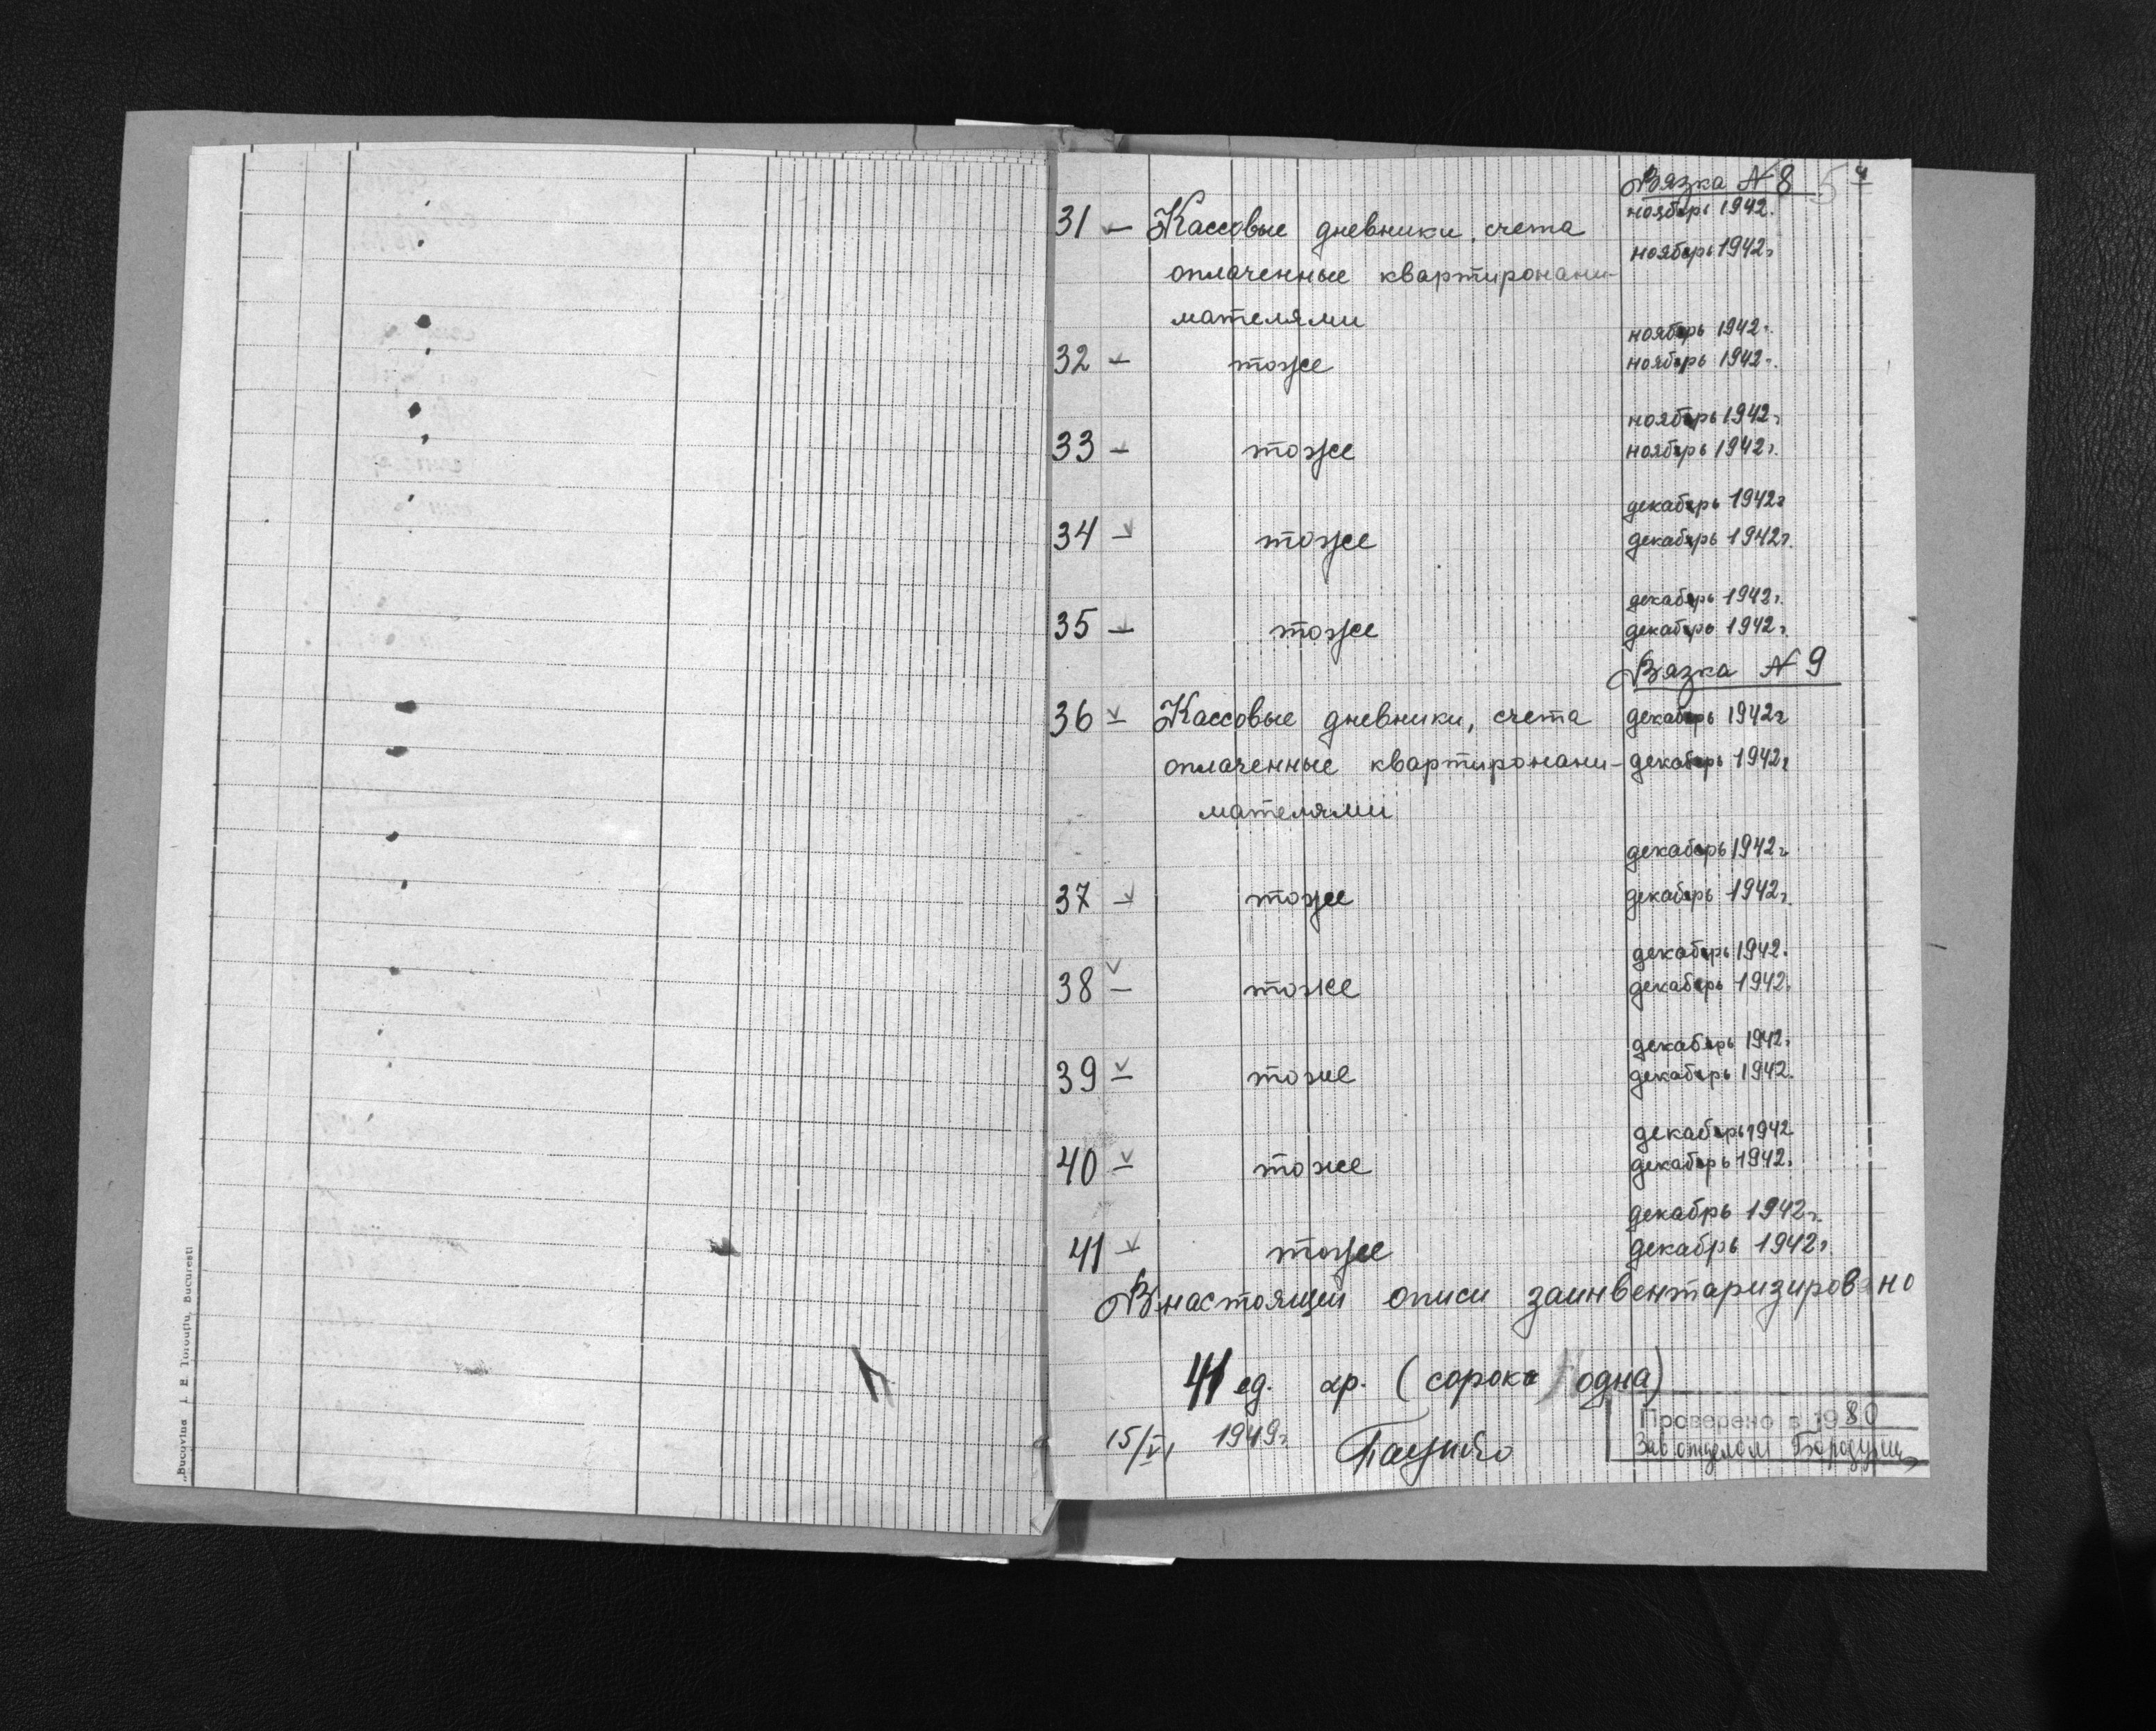 Вязка № 8 5 4
ноябрь 1942.
31 — Кассовые дневники, счета
ноябрь 1942г
оплаченные квартиронани-
мателями
ноябрь 1942г.
32 — тоже ноябрь 1942г.
ноябрь 1942г
33 — тоже ноябрь 1942г.
декабрь 1942г
34 — тоже декабрь 1942г.
декабрь 1942г.
35 — тоже декабрь 1942г.
Вязка № 9
36 — Кассовые дневники, счета декабрь 1942г
оплаченные квартиронани- декабрь 1942г
мателями
декабрь 1942г
37 — тоже декабрь 1942г.
декабрь 1942.
38 — тоже декабрь 1942.
декабрь 1942.
39 — тоже декабрь 1942.
декабрь 1942
40 — тоже декабрь 1942.
декабрь 1942г.
41 — тоже декабрь 1942г.
В настоящей описи заинвентаризировано
41 ед. хр. (сорок одна)
Проверено в 1980
15/VI 1949г.
Зав отделом
"Bucovina I. E. Torouțiu, Bucuresti